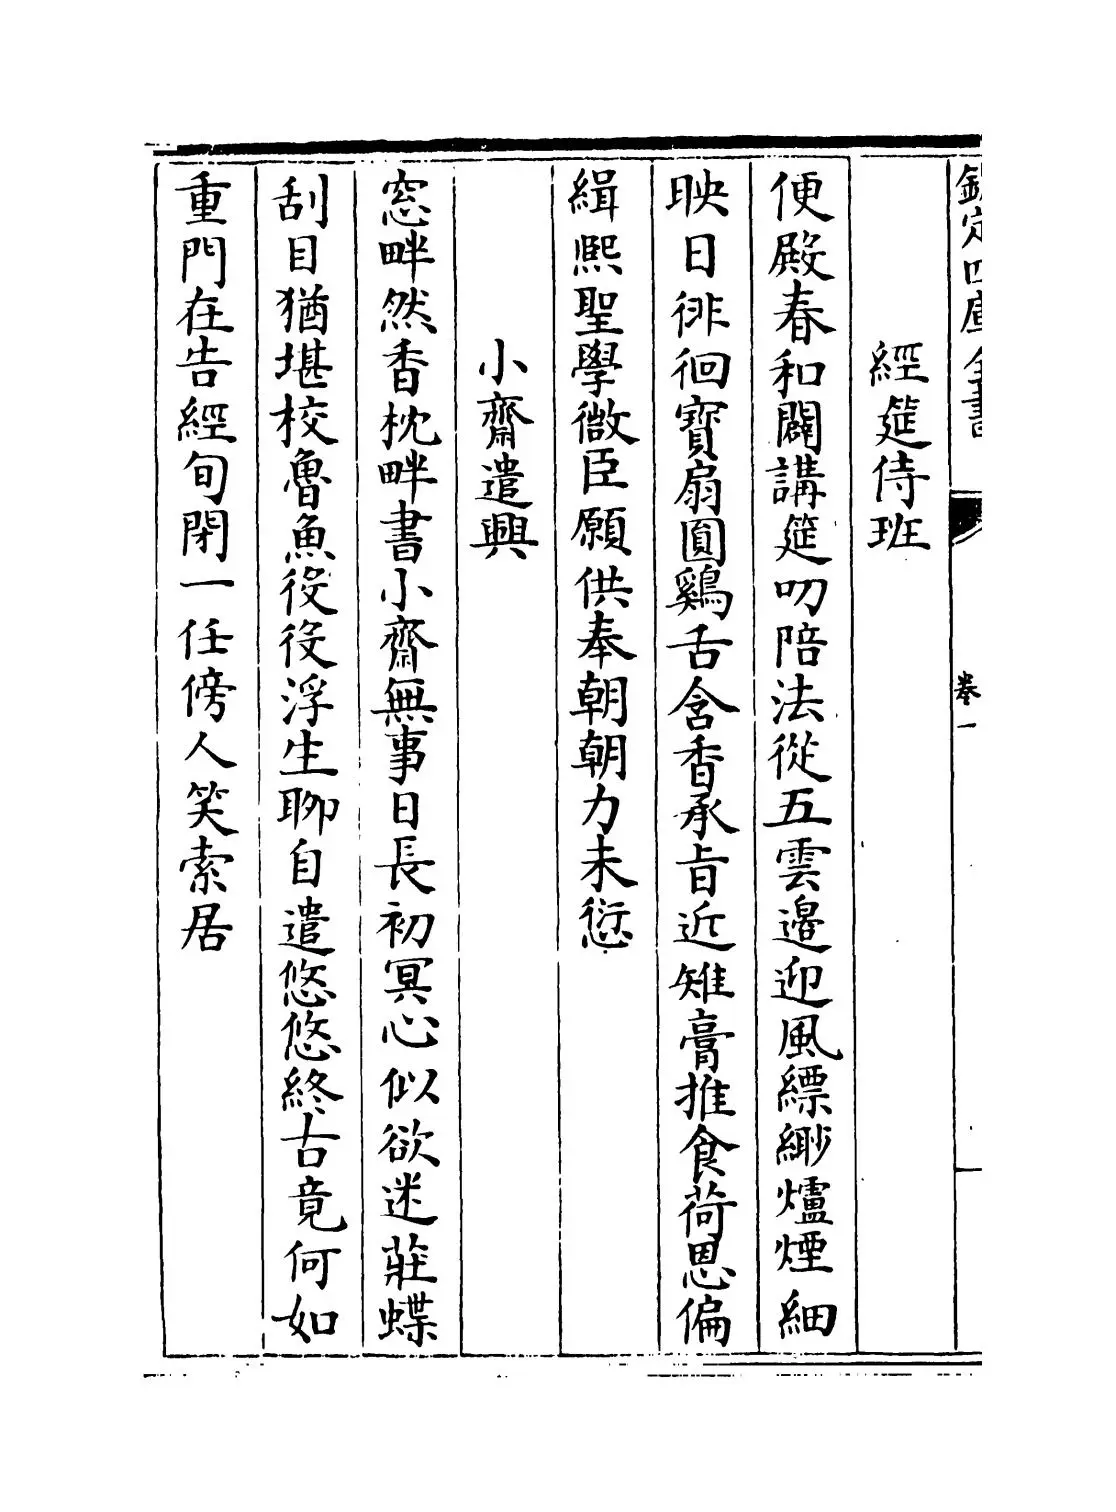 欽定四庫全書
卷一
經筵侍班
便殿春和闢講筵叨陪法從五雲邊迎風縹緲爐煙細
映日徘徊寶扇圓鷄舌含香承旨近雉膏推食荷恩偏
緝熙聖學微臣願供奉朝朝力未愆
小齋遣興
窓畔然香枕畔書小齋無事日長初冥心似欲迷莊蝶
刮目猶堪校魯魚役役浮生聊自遣悠悠終古竟何如
重門在告經旬閉一任傍人笑索居